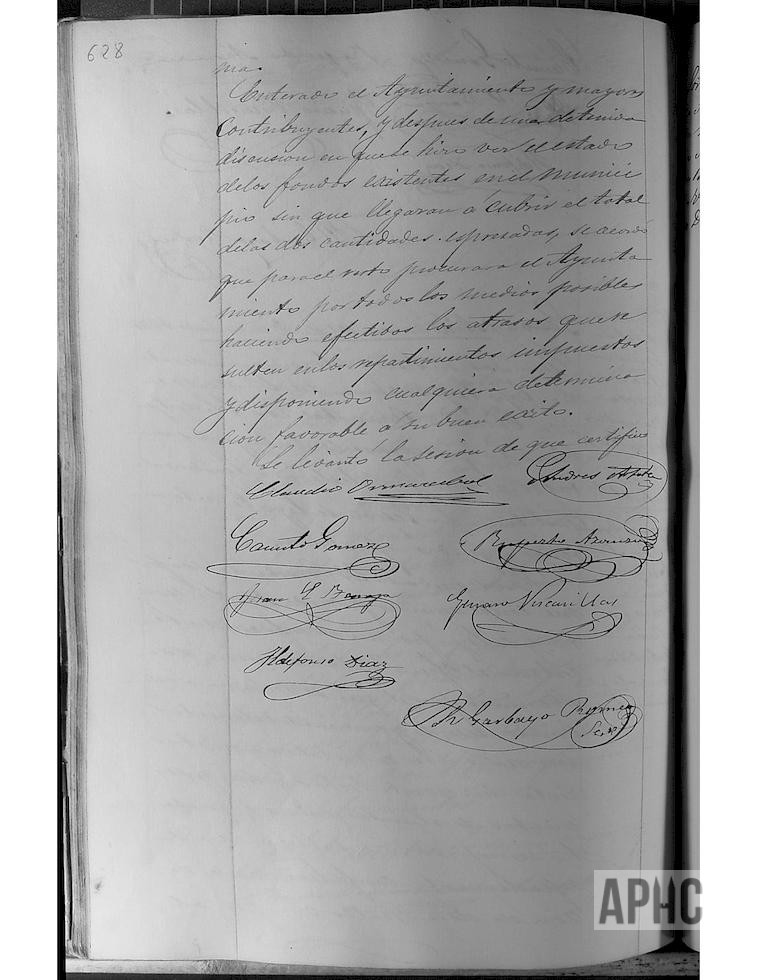 628
nia.
Enterado el Ayuntamiento y mayores
contribuyentes, y despues de una detenida
discusion en que se hizo ver el estado
delos fondos existentes en el munici
pio sin que llegaran á cubrir el total
delas dos cantidades espresadas, se acordó
que para el resto procurara el Ayunta
miento por todos los medios posibles
haciendo efectibos los atrasos que re
sulten enlos repartimientos impuestos
y disponiendo cualquiera determina
cion favorable á su buen exito.
Se levantó la sesion de que certifico
Claudio
Andres
Canuto Gomez
Ruperto
Juan
Genaro
Ildefonso Diaz
Garbayo
Scrio
APHC